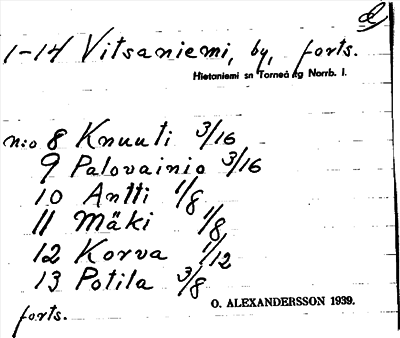 1-14 Vitsaniemi, by, forts.
Hietaniemi sn Torneå tg Norrb. l.
n:o 8 Knuuti 3/16
9 Palovainio 3/16
10 Antti 1/8
11 Mäki 1/8
12 Korva 1/12
13 Potila 3/8
forts.
O. ALEXANDERSSON 1939.